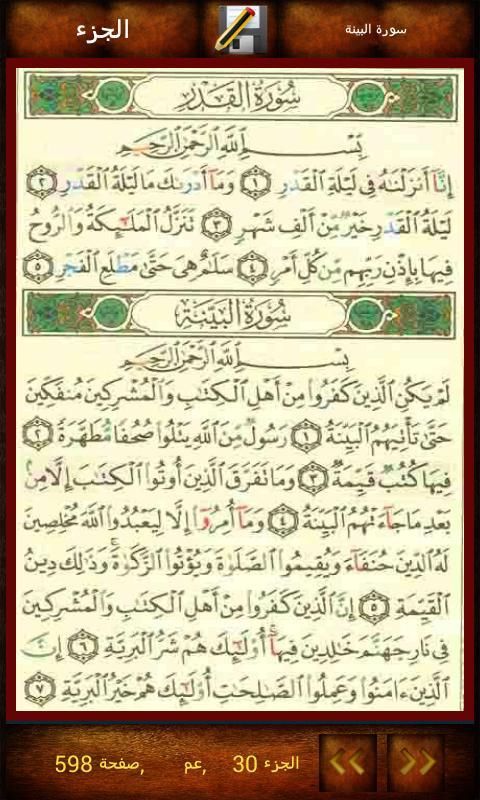 الجزء
سورة البينة
سُورَةُ القَدْرِ
بِسْمِ اللَّهِ الرَّحْمَٰنِ الرَّحِيمِ
إِنَّآ أَنزَلْنَٰهُ فِى لَيْلَةِ ٱلْقَدْرِ ١ وَمَآ أَدْرَىٰكَ مَا لَيْلَةُ ٱلْقَدْرِ ٢
لَيْلَةُ ٱلْقَدْرِ خَيْرٌ مِّنْ أَلْفِ شَهْرٍ ٣ تَنَزَّلُ ٱلْمَلَٰٓئِكَةُ وَٱلرُّوحُ
فِيهَا بِإِذْنِ رَبِّهِم مِّن كُلِّ أَمْرٍ ٤ سَلَٰمٌ هِىَ حَتَّىٰ مَطْلَعِ ٱلْفَجْرِ ٥
سُورَةُ البَيِّنَةِ
بِسْمِ اللَّهِ الرَّحْمَٰنِ الرَّحِيمِ
لَمْ يَكُنِ ٱلَّذِينَ كَفَرُوا۟ مِنْ أَهْلِ ٱلْكِتَٰبِ وَٱلْمُشْرِكِينَ مُنفَكِّينَ
حَتَّىٰ تَأْتِيَهُمُ ٱلْبَيِّنَةُ ١ رَسُولٌ مِّنَ ٱللَّهِ يَتْلُوا۟ صُحُفًا مُّطَهَّرَةً ٢
فِيهَا كُتُبٌ قَيِّمَةٌ ٣ وَمَا تَفَرَّقَ ٱلَّذِينَ أُوتُوا۟ ٱلْكِتَٰبَ إِلَّا مِنۢ
بَعْدِ مَا جَآءَتْهُمُ ٱلْبَيِّنَةُ ٤ وَمَآ أُمِرُوٓا۟ إِلَّا لِيَعْبُدُوا۟ ٱللَّهَ مُخْلِصِينَ
لَهُ ٱلدِّينَ حُنَفَآءَ وَيُقِيمُوا۟ ٱلصَّلَوٰةَ وَيُؤْتُوا۟ ٱلزَّكَوٰةَ ۚ وَذَٰلِكَ دِينُ
ٱلْقَيِّمَةِ ٥ إِنَّ ٱلَّذِينَ كَفَرُوا۟ مِنْ أَهْلِ ٱلْكِتَٰبِ وَٱلْمُشْرِكِينَ
فِى نَارِ جَهَنَّمَ خَٰلِدِينَ فِيهَآ ۚ أُو۟لَٰٓئِكَ هُمْ شَرُّ ٱلْبَرِيَّةِ ٦ إِنَّ
ٱلَّذِينَ ءَامَنُوا۟ وَعَمِلُوا۟ ٱلصَّٰلِحَٰتِ أُو۟لَٰٓئِكَ هُمْ خَيْرُ ٱلْبَرِيَّةِ ٧
الجزء 30 ,عم ,صفحة 598